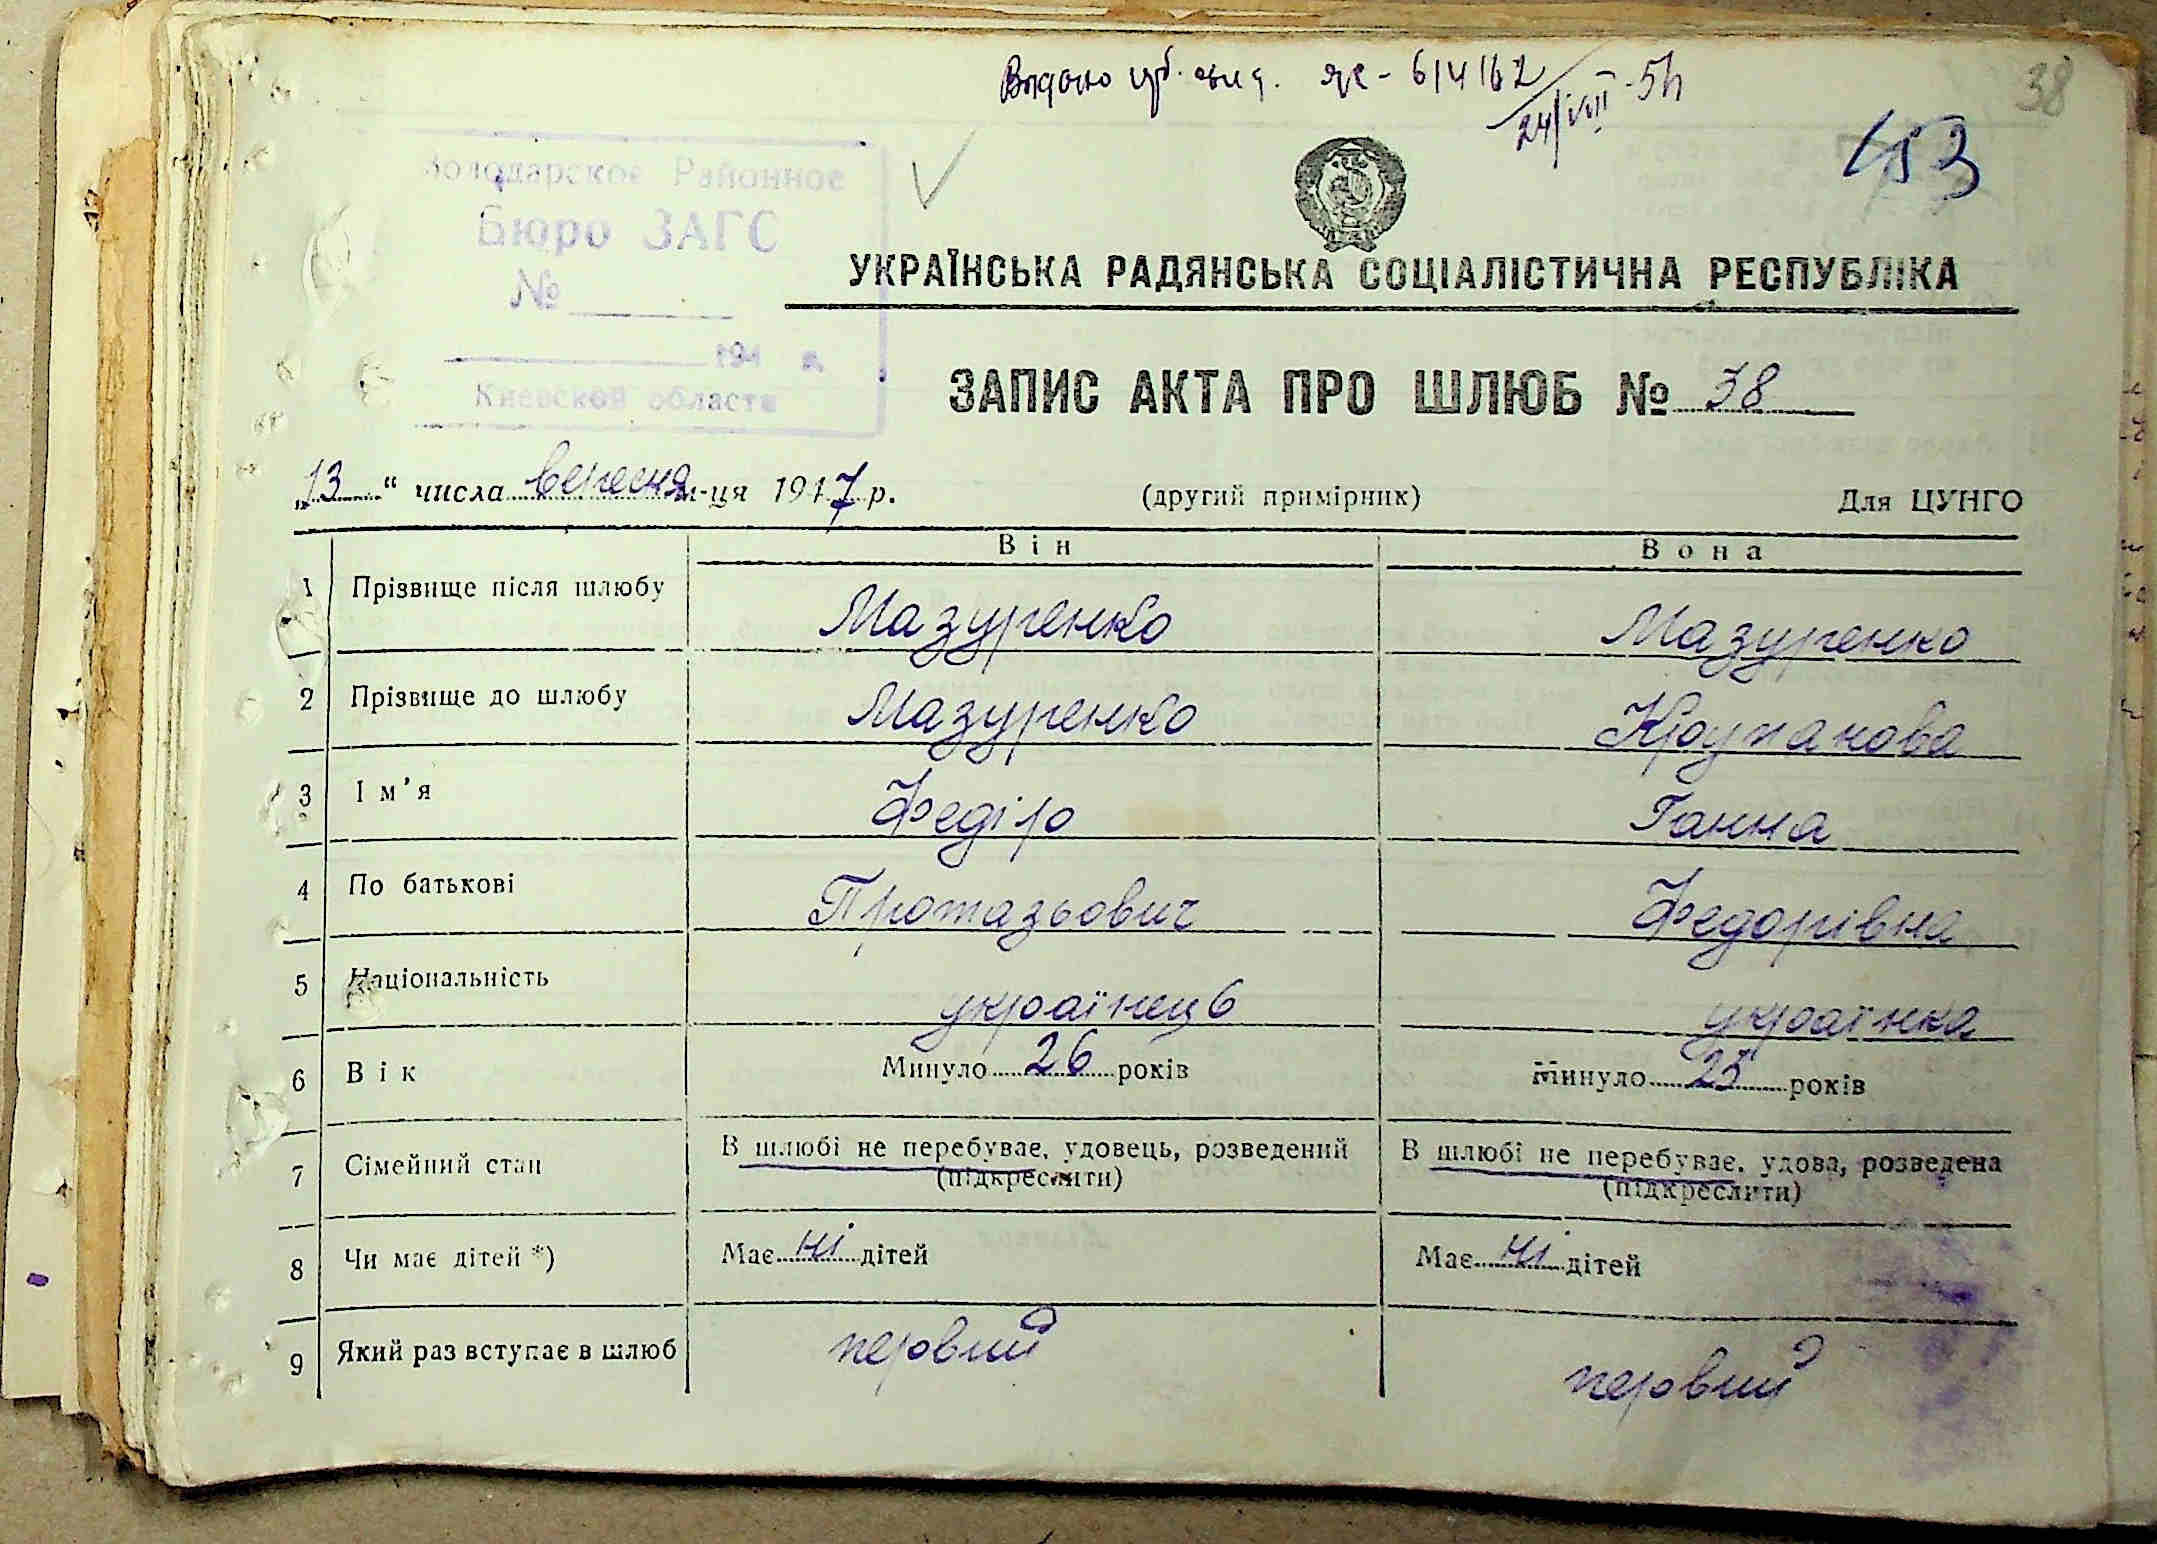 Видано шл. свид. ЯЄ - 614162
24/VIII-54
38
153
Володарское Районное
Бюро ЗАГС
№
194 г.
Киевской области
УКРАЇНСЬКА РАДЯНСЬКА СОЦІАЛІСТИЧНА РЕСПУБЛІКА
ЗАПИС АКТА ПРО ШЛЮБ № 38
„13“ числа вересня м-ця 1947 р. (другий примірник) Для ЦУНГО
Він Вона
1 Прізвище після шлюбу Мазуренко Мазуренко
2 Прізвище до шлюбу Мазуренко
3 Ім’я Федір Ганна
4 По батькові Протазьович Федорівна
5 Національність українець українка
6 Вік Минуло 26 років Минуло 25 років
7 Сімейний стан В шлюбі не перебуває, удовець, розведений В шлюбі не перебуває, удова, розведена
(підкреслити) (підкреслити)
8 Чи має дітей *) Має ні дітей Має ні дітей
9 Який раз вступає в шлюб первий первий